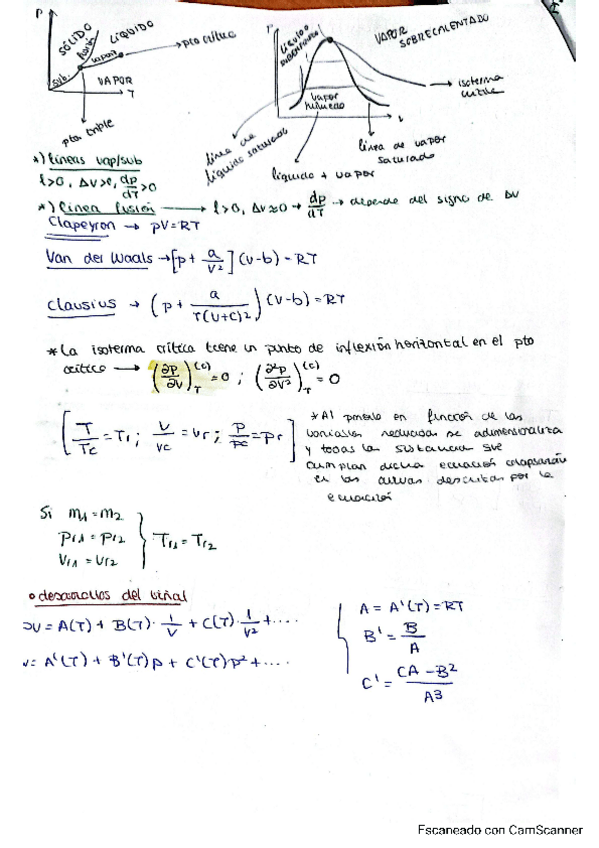 P
SÓLIDO
fusión
LÍQUIDO
vapor.
pto crítico
sub.
VAPOR
T
pto triple
P
líquido
subenfriado
VAPOR
SOBRECALENTADO
isoterma
crítica
vapor
húmedo
línea de
líquido saturado
línea de vapor
saturado
líquido + vapor
*) líneas vap/sub
l>0, Δv>0, dp/dT >0
*) línea fusión → l>0, Δv≈0 → dp/dT → depende del signo de Δv
Clapeyron → pV=RT
Van der Waals → [p + a/v²] (v-b) = RT
Clausius → (p + a/T(v+c)²) (v-b) = RT
* La isoterma crítica tiene un punto de inflexión horizontal en el pto
crítico → (∂p/∂v)_T^(c) = 0 ; (∂²p/∂v²)_T^(c) = 0
[T/Tc = Tr ; v/vc = vr ; p/pc = pr]
* Al ponerlo en función de las
variables reducidas se adimensionaliza
y todas las sustancias que
cumplan dicha ecuación colapsarán
en las curvas descritas por la
ecuación
Si m1 = m2
pr1 = pr2
vr1 = vr2
Tr1 = Tr2
• desarrollos del virial
pv = A(T) + B(T) · 1/v + C(T) · 1/v² + ....
v = A'(T) + B'(T)p + C'(T)p² + ....
A = A'(T) = RT
B' = B/A
C' = CA - B²/A³
Escaneado con CamScanner